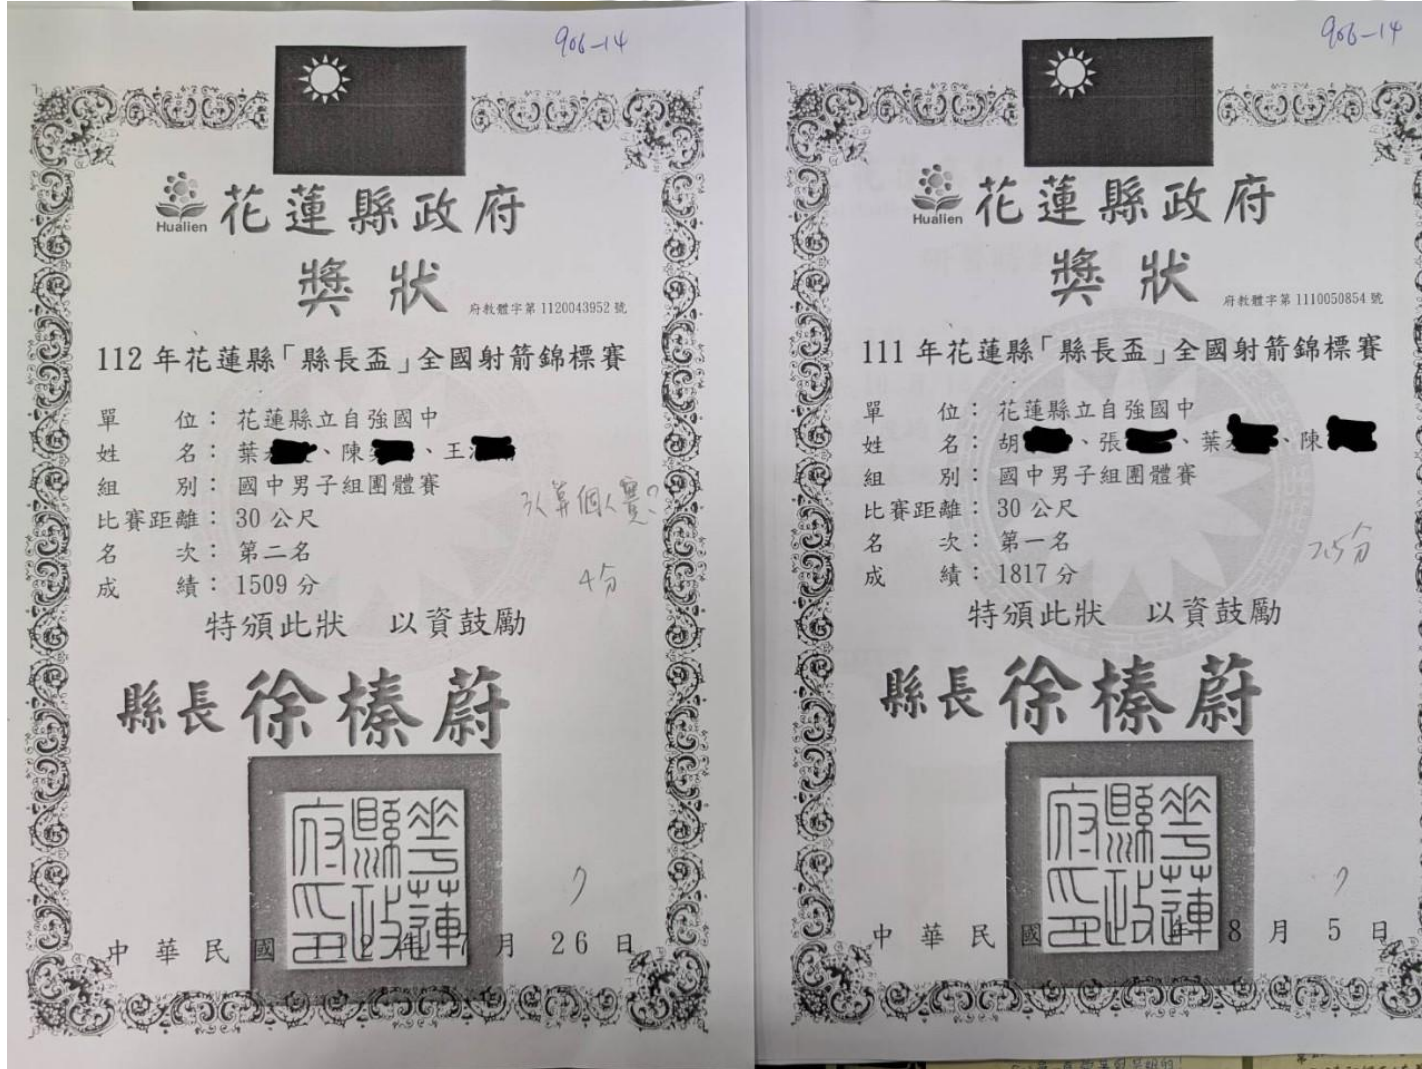 906-14
Hualien 花蓮縣政府
獎狀
府教體字第 1120043952 號
112 年花蓮縣「縣長盃」全國射箭錦標賽
單 位：花蓮縣立自強國中
姓 名：葉、陳、王
組 別：國中男子組團體賽
比賽距離：30 公尺
名 次：第二名
成 績：1509 分
個人賽？
4分
特頒此狀 以資鼓勵
縣長 徐榛蔚
花蓮縣政府印
中華民國 112 年 7 月 26 日
906-14
Hualien 花蓮縣政府
獎狀
府教體字第 1110050854 號
111 年花蓮縣「縣長盃」全國射箭錦標賽
單 位：花蓮縣立自強國中
姓 名：胡、張、葉、陳
組 別：國中男子組團體賽
比賽距離：30 公尺
名 次：第一名
成 績：1817 分
分
特頒此狀 以資鼓勵
縣長 徐榛蔚
花蓮縣政府印
中華民國 年 8 月 5 日